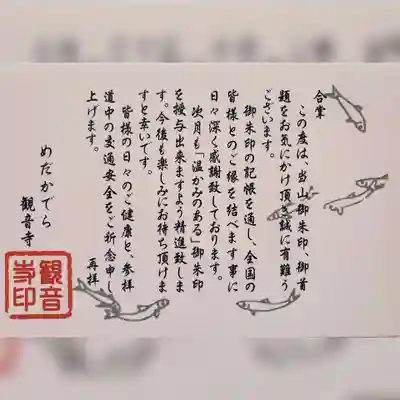 合掌
この度は、当山御朱印、御首
題をお気にかけ頂き誠に有難う
ございます。
御朱印の記帳を通し、全国の
皆様とのご縁を結べます事に
日々深く感謝致しております。
次月も「温かみのある」御朱印
を授与出来ますよう精進致しま
す。今後も楽しみにお待ち頂けま
すと幸いです。
皆様の日々のご健康と、参拝
道中の交通安全をご祈念申し
上げます。
再拝
めだかでら
観音寺
観音
寺印